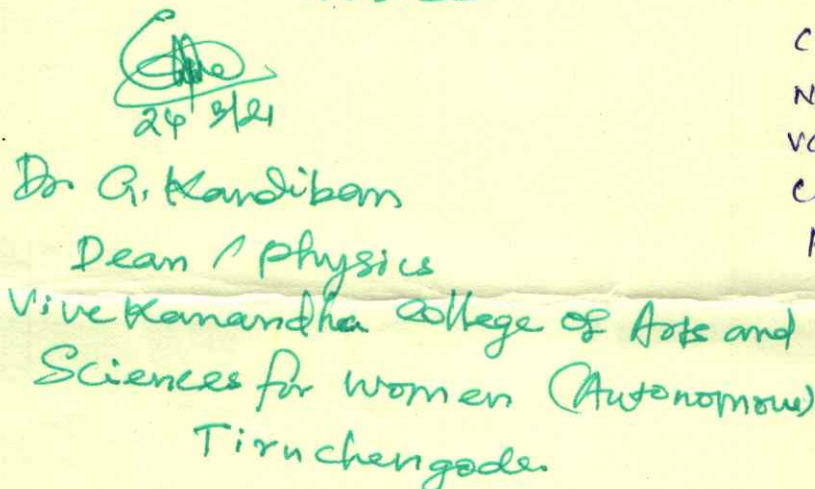 24/3/21
Dr G. Kandiban
Dean / physics
Vivekanandha College of Arts and
Sciences for women (Autonomous)
Tiruchengode.
C
N
VC
C